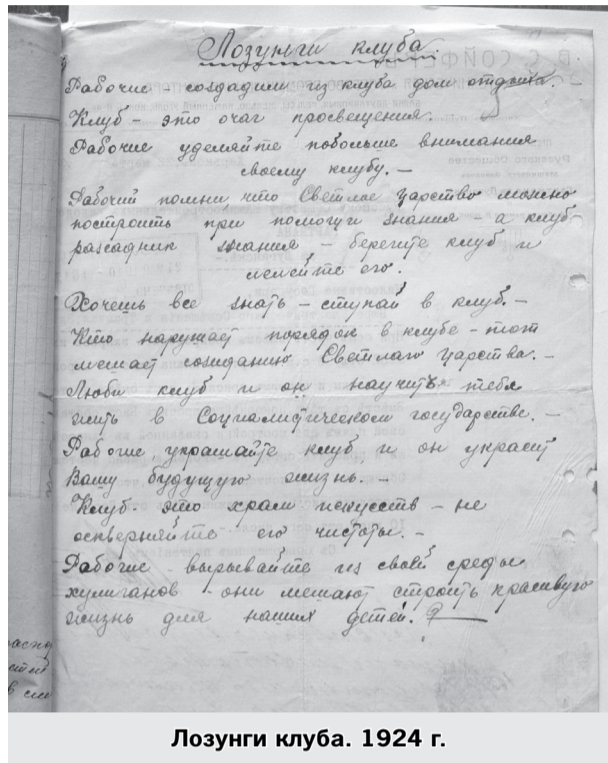 Лозунги клуба
Рабочие – создадим из клуба дом отдыха. –
Клуб – это очаг просвещения.
Рабочие уделяйте побольше внимания
своему клубу. –
Рабочий помни, что Светлое царство можно
построить при помощи знания – а клуб
разсадник знания – берегите клуб и
лелейте его.
Хочешь все знать – ступай в клуб. –
Кто нарушает порядок в клубе – тот
мешает созиданию Светлаго царства. –
Люби клуб и он научить тебя
жить в Социалистическом государстве. –
Рабочие, украшайте клуб, и он украсит
Вашу будущую жизнь. –
Клуб – это храм искусств – не
оскверняйте его чистоты. –
Рабочие – вырывайте из своей среды
хулиганов – они мешают строить красивую
жизнь для наших детей.
Лозунги клуба. 1924 г.